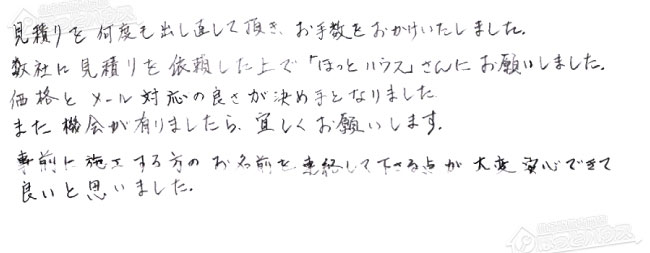 見積りを何度も出し直して頂き、お手数をおかけいたしました。
数社に見積りを依頼した上で「ほっとハウス」さんにお願いしました。
価格とメール対応の良さが決め手となりました
また機会が有りましたら、宜しくお願いします。
事前に施工する方のお名前を連絡して下さる点が大変安心できて
良いと思いました。